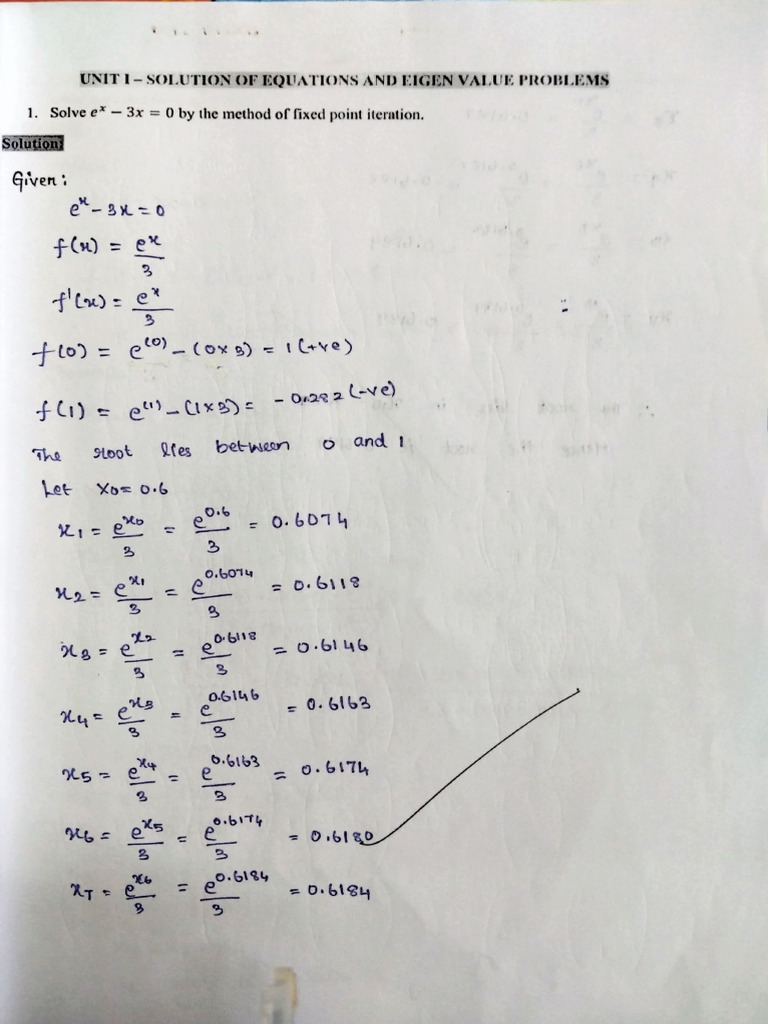 UNIT I – SOLUTION OF EQUATIONS AND EIGEN VALUE PROBLEMS
1. Solve eˣ − 3x = 0 by the method of fixed point iteration.
Solution:
Given:
eˣ - 3x = 0
f(x) = eˣ/3
f'(x) = eˣ/3
f(0) = e⁽⁰⁾ - (0×3) = 1 (+ve)
f(1) = e⁽¹⁾ - (1×3) = -0.282 (-ve)
The root lies between 0 and 1
Let x0 = 0.6
x1 = e^x0/3 = e^0.6/3 = 0.6074
x2 = e^x1/3 = e^0.6074/3 = 0.6118
x3 = e^x2/3 = e^0.6118/3 = 0.6146
x4 = e^x3/3 = e^0.6146/3 = 0.6163
x5 = e^x4/3 = e^0.6163/3 = 0.6174
x6 = e^x5/3 = e^0.6174/3 = 0.6180
x7 = e^x6/3 = e^0.6184/3 = 0.6184